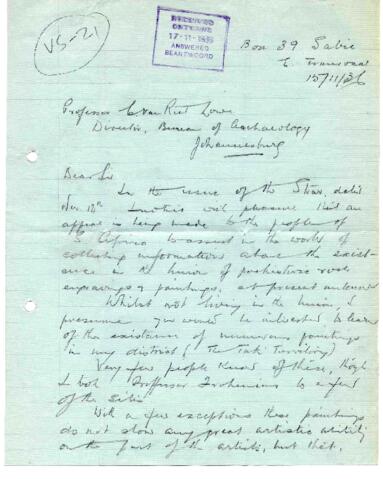 VS-21
RECEIVED
ONTVANG
17-11-1936
ANSWERED
BEANTWOORD
Box 39 Sabie
E. Transvaal
15/11/36
Professor C van Riet Lowe
Director, Bureau of Archaeology
Johannesburg
Dear Sir
In the issue of the Star, dated
Nov 12th I notice with pleasure that an
appeal is being made to the people of
S Africa to assist in the work of
collecting information about the exist-
ence in the Union of prehistoric rock
engravings & paintings, at present unknown
Whilst not living in the Union, I
presume you would be interested to learn
of the existence of numerous paintings
in my district (The Territory)
Very few people know of these, though
I took Professor Frobenius to a few
of the sites
With a few exceptions these paintings
do not show any great artistic ability
on the part of the artists, but that,